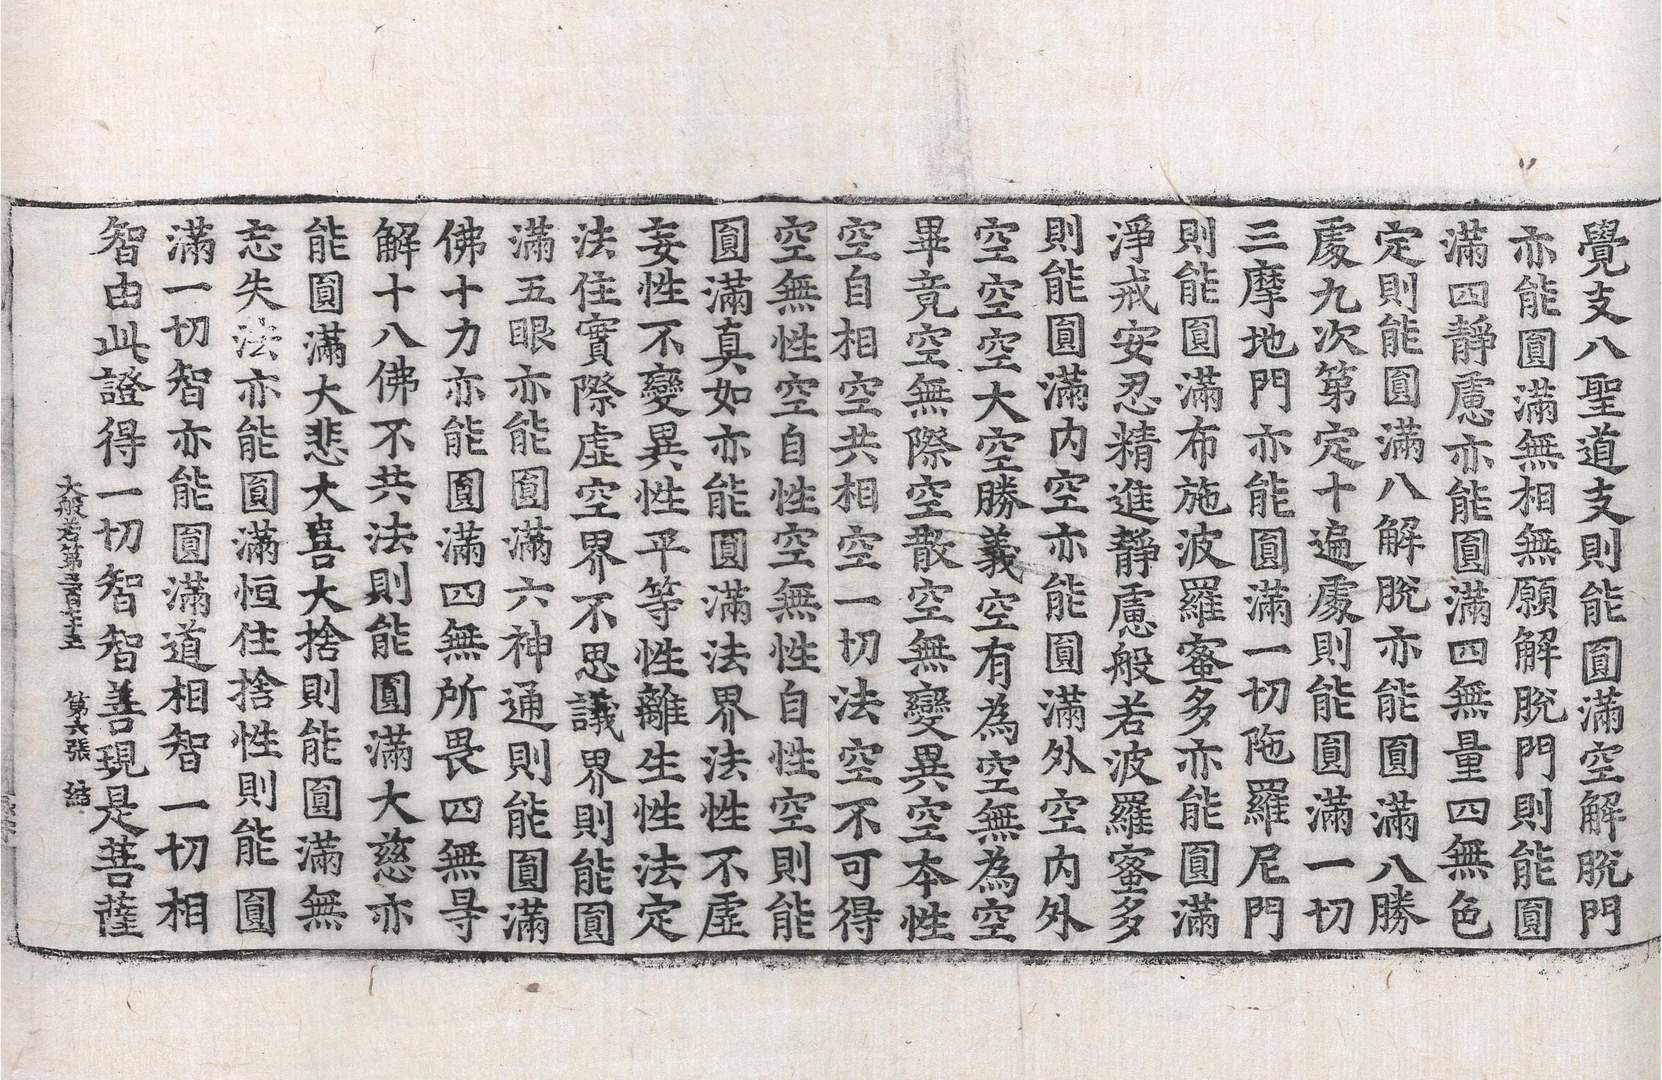 覺支八聖道支則能圓滿空解脫門
亦能圓滿無相無願解脫門則能圓
滿四靜慮亦能圓滿四無量四無色
定則能圓滿八解脫亦能圓滿八勝
處九次第定十遍處則能圓滿一切
三摩地門亦能圓滿一切陁羅尼門
則能圓滿布施波羅蜜多亦能圓滿
淨戒安忍精進靜慮般若波羅蜜多
則能圓滿內空亦能圓滿外空內外
空空空大空勝義空有為空無為空
畢竟空無際空散空無變異空本性
空自相空共相空一切法空不可得
空無性空自性空無性自性空則能
圓滿真如亦能圓滿法界法性不虛
妄性不變異性平等性離生性法定
法住實際虛空界不思議界則能圓
滿五眼亦能圓滿六神通則能圓滿
佛十力亦能圓滿四無所畏四無㝵
解十八佛不共法則能圓滿大慈亦
能圓滿大悲大喜大捨則能圓滿無
忘失法亦能圓滿恒住捨性則能圓
滿一切智亦能圓滿道相智一切相
智由此證得一切智智善現是菩薩
大般若第三百七十五 第六張 結